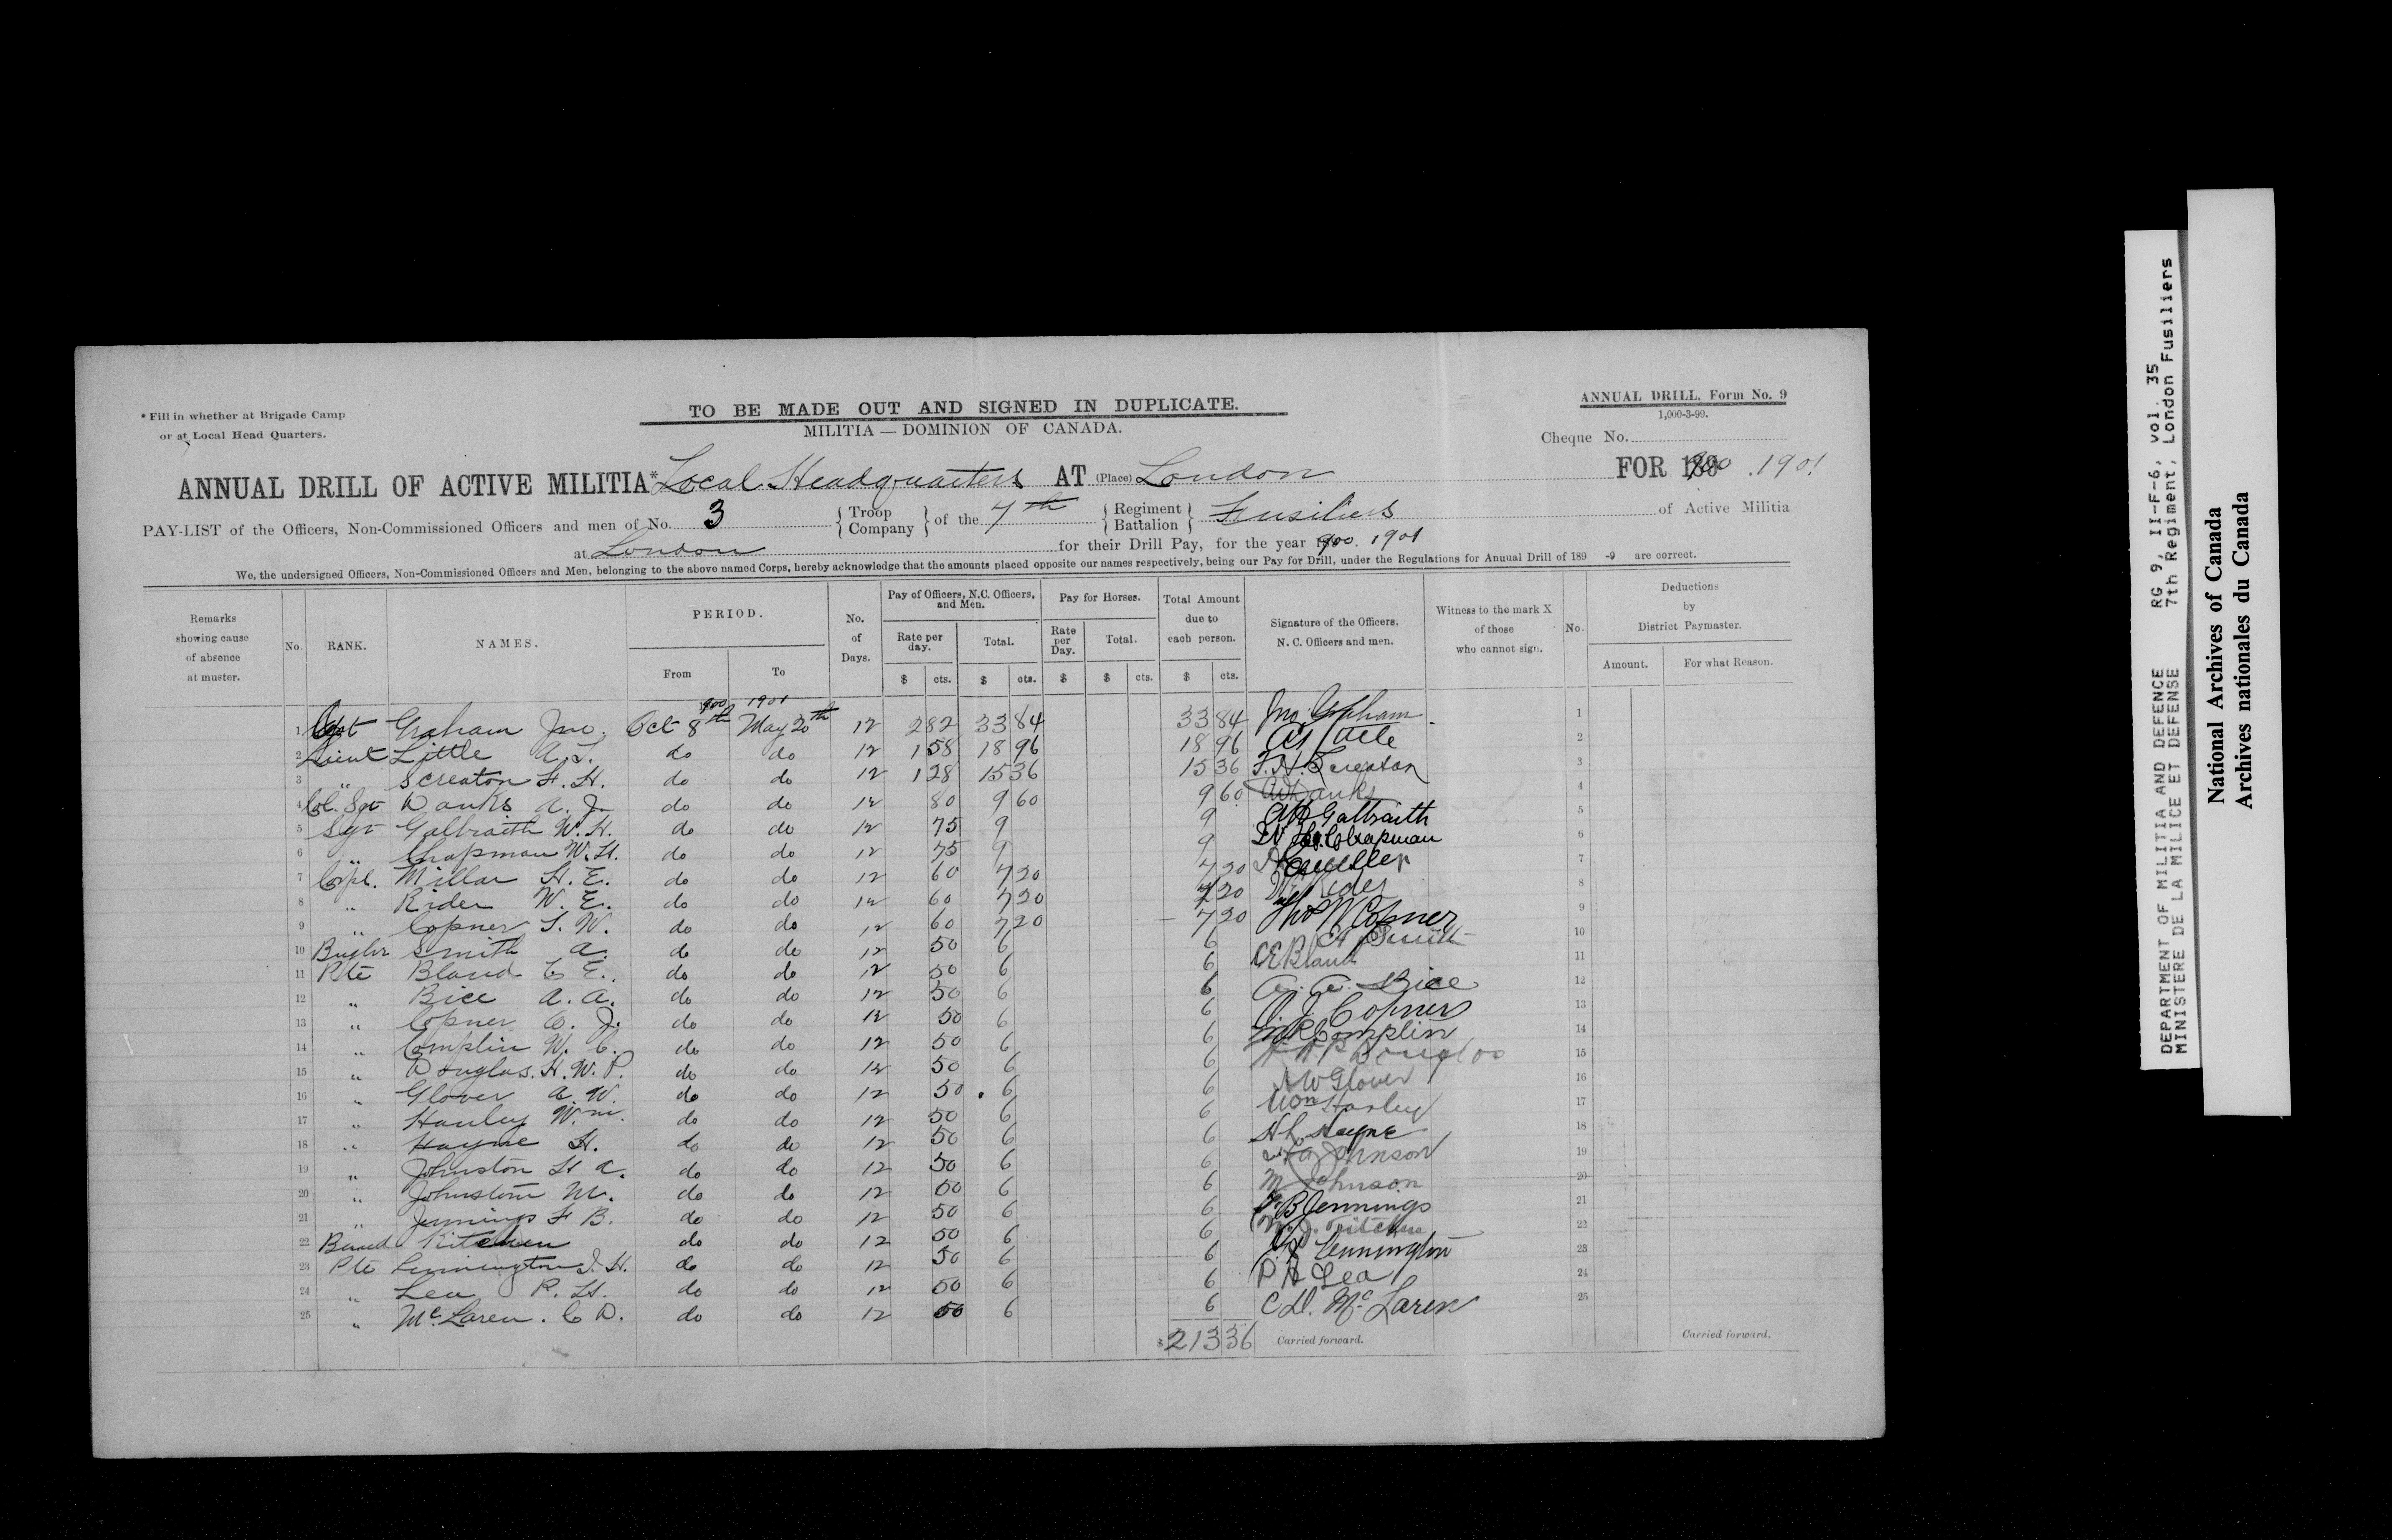 * Fill in whether at Brigade Camp
or at Local Head Quarters.
TO BE MADE OUT AND SIGNED IN DUPLICATE.
MILITIA — DOMINION OF CANADA.
ANNUAL DRILL, Form No. 9
1,000-3-99.
Cheque No.
ANNUAL DRILL OF ACTIVE MILITIA* Local Headquarters AT (Place) London FOR 1900 . 1901
PAY-LIST of the Officers, Non-Commissioned Officers and men of No. 3 { Troop Company } of the 7th { Regiment Battalion } Fusiliers of Active Militia
at London for their Drill Pay, for the year 900. 1901
We, the undersigned Officers, Non-Commissioned Officers and Men, belonging to the above named Corps, hereby acknowledge that the amounts placed opposite our names respectively, being our Pay for Drill, under the Regulations for Annual Drill of 189 -9 are correct.
Remarks showing cause of absence at muster. No. RANK. NAMES. PERIOD. From To No. of Days. Pay of Officers, N.C. Officers, and Men. Rate per day. $ cts. Total. $ cts. Pay for Horses. Rate per Day. $ Total. $ cts. Total Amount due to each person. $ cts. Signature of the Officers, N. C. Officers and men. Witness to the mark X of those who cannot sign. No. Deductions by District Paymaster. Amount. For what Reason.
900 1901
1 Capt Graham Jno. Oct 8th May 20th 12 2 82 33 84 33 84 Jno. Graham 1
2 Lieut Little A. T. do do 12 1 58 18 96 18 96 2
3 " Screaton F. H. do do 12 1 28 15 36 15 36 F. H. Screaton 3
4 Col. Sgt Danks A. J. do do 12 80 9 60 9 60 AJ Danks 4
5 Sgt Galbraith W. H. do do 12 75 9 9 Galbraith 5
6 " Chapman W. H. do do 12 75 9 9 W. H. Chapman 6
7 Corpl. Millar H. E. do do 12 60 7 20 7 20 7
8 " Rider W. E. do do 12 60 7 20 7 20 8
9 " Copner T. W. do do 12 60 7 20 7 20 Thos W Copner 9
10 Bugler Smith A. do do 12 50 6 6 A Smith 10
11 Pte Bland C E. do do 12 50 6 6 C E Bland 11
12 " Bice A. A. do do 12 50 6 6 A. A. Bice 12
13 " Copner O. J. do do 12 50 6 6 O. J. Copner 13
14 " Complin W. C. do do 12 50 6 6 Complin 14
15 " Douglas. H. W. P. do do 12 50 6 6 H W P Douglas 15
16 " Glover A. W. do do 12 50 6 6 A W Glover 16
17 " Hanley Wm. do do 12 50 6 6 Wm Hanley 17
18 " Hayne H. do do 12 50 6 6 H. Hayne 18
19 " Johnston H A. do do 12 50 6 6 Johnson 19
20 " Johnston M. do do 12 50 6 6 M Johnson 20
21 " Jennings F B. do do 12 50 6 6 F B Jennings 21
22 Band Kitchen do do 12 50 6 6 Kitchen 22
23 Pte Lennington J. H. do do 12 50 6 6 Lennington 23
24 " Lea R. H. do do 12 50 6 6 R H Lea 24
25 " McLaren. C D. do do 12 50 6 6 C D. McLaren 25
$ 213 36 Carried forward. Carried forward.
DEPARTMENT OF MILITIA AND DEFENCE RG 9, II-F-6, vol. 35
MINISTERE DE LA MILICE ET DEFENSE 7th Regiment, London Fusiliers
National Archives of Canada
Archives nationales du Canada